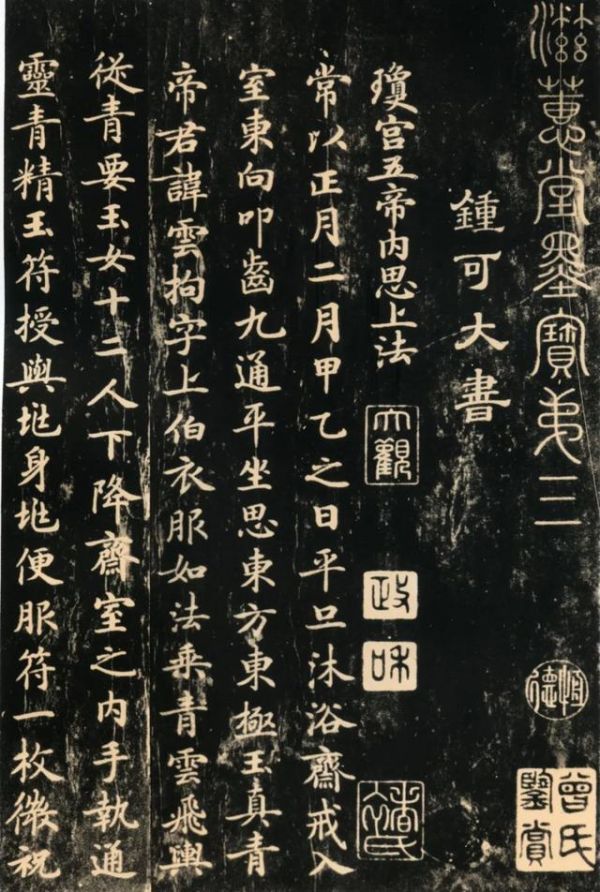 滋蕙堂墨寶弟三
恒德
曾氏鑒賞
鍾可大書
瓊宫五帝内思上法
大觀
政和
常以正月二月甲乙之日平旦沐浴齋戒入
室東向叩齒九通平坐思東方東極玉真青
帝君諱雲拘字上伯衣服如法乗青雲飛輿
從青要玉女十二人下降齋室之内手執通
靈青精玉符授與垗身垗便服符一枚微祝